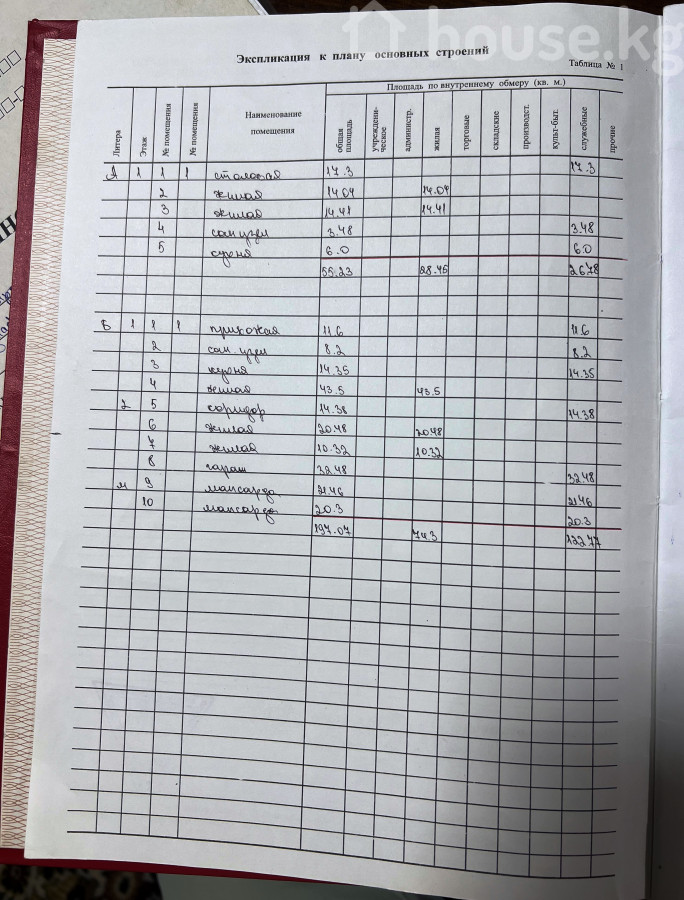 house.kg
Экспликация к плану основных строений
Таблица № 1
Литера Этаж № помещения № помещения Наименование помещения Площадь по внутреннему обмеру (кв. м.)
общая площадь учреждени-ческое администр. жилая торговые складские производст. культ-быт. служебные прочие
А 1 1 1 столовая 17.3 17.3
2 жилая 14.04 14.04
3 жилая 14.41 14.41
4 сан узел 3.48 3.48
5 кухня 6.0 6.0
55.23 28.45 26.78
Б 1 1 1 прихожая 11.6 11.6
2 сан. узел 8.2 8.2
3 кухня 14.35 14.35
4 жилая 43.5 43.5
2 5 коридор 14.38 14.38
6 жилая 20.48 20.48
7 жилая 10.32 10.32
8 гараж 32.48 32.48
м 9 мансарда 21.46 21.46
10 мансарда 20.3 20.3
197.07 74.3 122.77